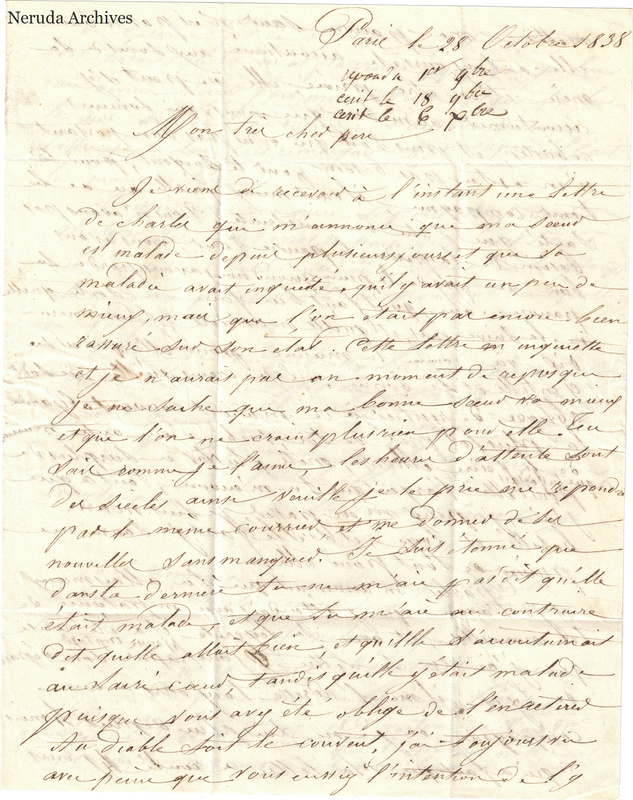 Neruda Archives
Paris le 28 Octobre 1838
repondu 1er 9bre
ecrit le 18 9bre
ecrit le 6 xbre
Mon tres cher pere
Je viens de recevoir à l'instant une lettre
de charles qui m'annonce que ma soeur
est malade depuis plusieurs jours et que sa
maladie avait inquiété, qu'il y avait un peu de
mieux, mais que l'on était pas encore bien
rassuré sur son état. Cette lettre m'inquiette
et je n'aurait pas un moment de repos que
je ne sache que ma bonne soeur va mieux
et que l'on ne craint plus rien pour elle. Tu
sais comme je l'aime, les heures d'attente sont
des siecles ainsi veuille je te prie me repondre
par le même courrier et me donner de ses
nouvelles sans manquer. Je suis étonné que
dans ta derniere tu ne m'aie pas dit qu'elle
était malade, et que tu m'aie au contraire
dit quelle allait bien, et quelle s'accoutumait
au sacré coeur, tandis qu'elle y était malade
puisque vous avez été oblige de l'en retirer
Au diable soit le couvent, j'ai toujours vu
avec peine que vous eussiez l'intention de l'y